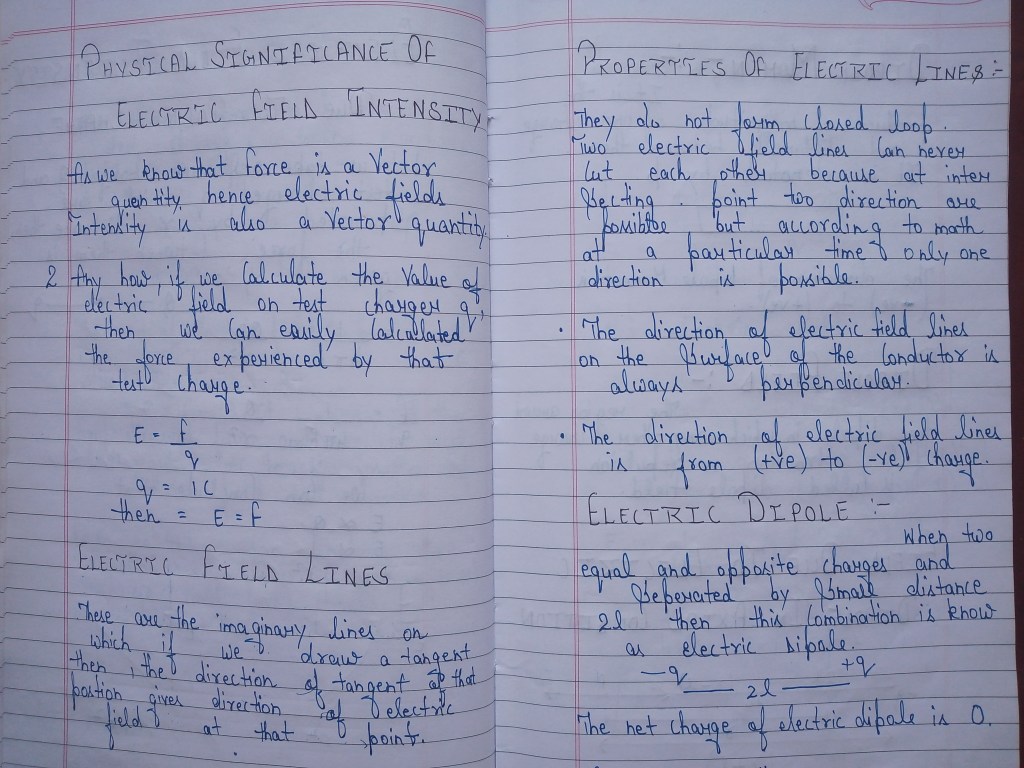 PHYSICAL SIGNIFICANCE OF
ELECTRIC FIELD INTENSITY
As we know that force is a Vector
quantity, hence electric fields
Intensity is also a Vector quantity.
2 Any how, if we Calculate the Value of
electric field on test charger q,
then we can easily Calculated
the force experienced by that
test charge.
E = f
q
q = 1C
then = E = f
ELECTRIC FIELD LINES
These are the imaginary lines on
which if we draw a tangent
then, the direction of tangent of that
position gives direction of electric
field at that point.
PROPERTIES OF ELECTRIC LINES :-
They do not form closed loop.
Two electric field lines can never
cut each other because at inter
secting point two direction are
possible but according to math
at a particular time only one
direction is possible.
• The direction of electric field lines
on the surface of the conductor is
always perpendicular.
• The direction of electric field lines
is from (+ve) to (-ve) charge.
ELECTRIC DIPOLE :-
When two
equal and opposite charges and
seperated by small distance
2l then this combination is know
as electric dipole.
-q +q
2l
The net charge of electric dipole is 0.